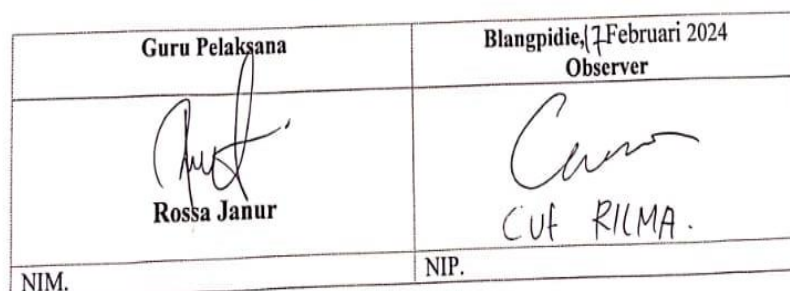 Guru Pelaksana
Blangpidie, 17 Februari 2024
Observer
Rossa Janur
CUT RILMA.
NIM.
NIP.